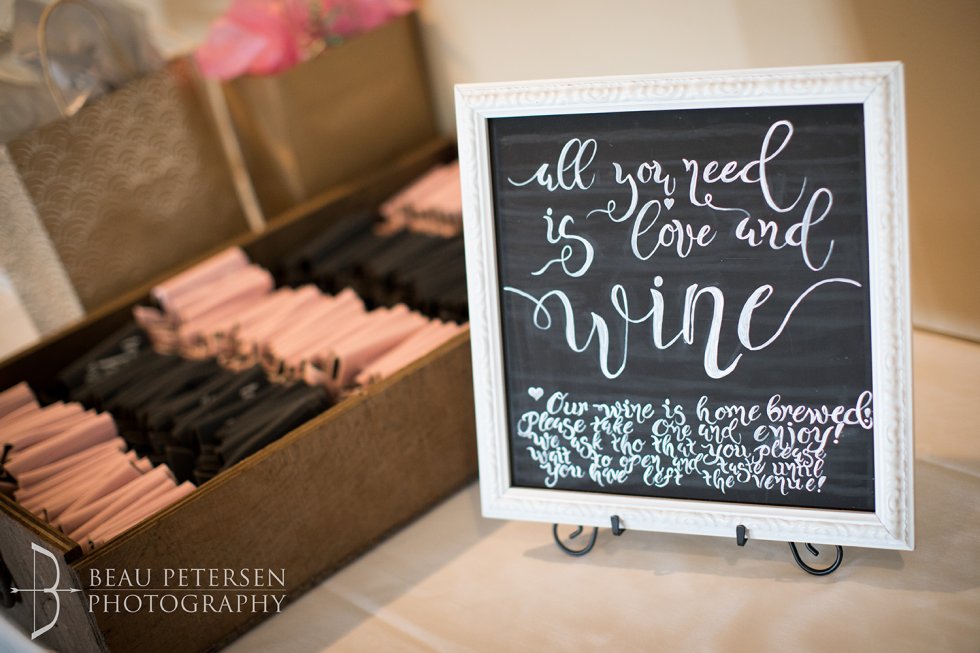 all you need
is love and
wine
Our wine is home brewed!
Please take one and enjoy!
we ask tho that you please
wait to open and taste until
you have left the venue!
B
BEAU PETERSEN
PHOTOGRAPHY